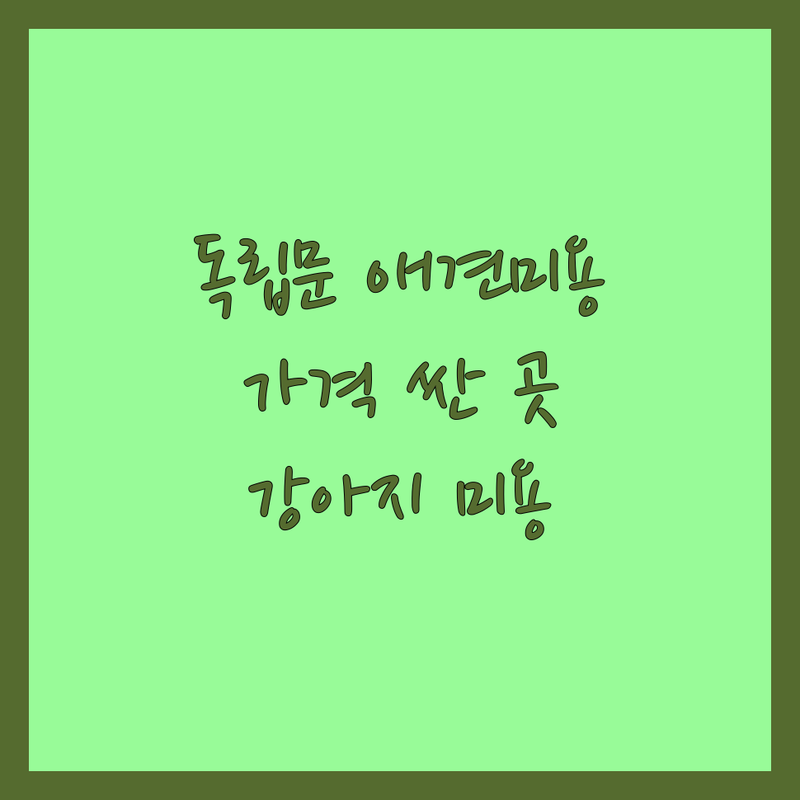 독립문 애견미용
가격 싼 곳
강아지 미용